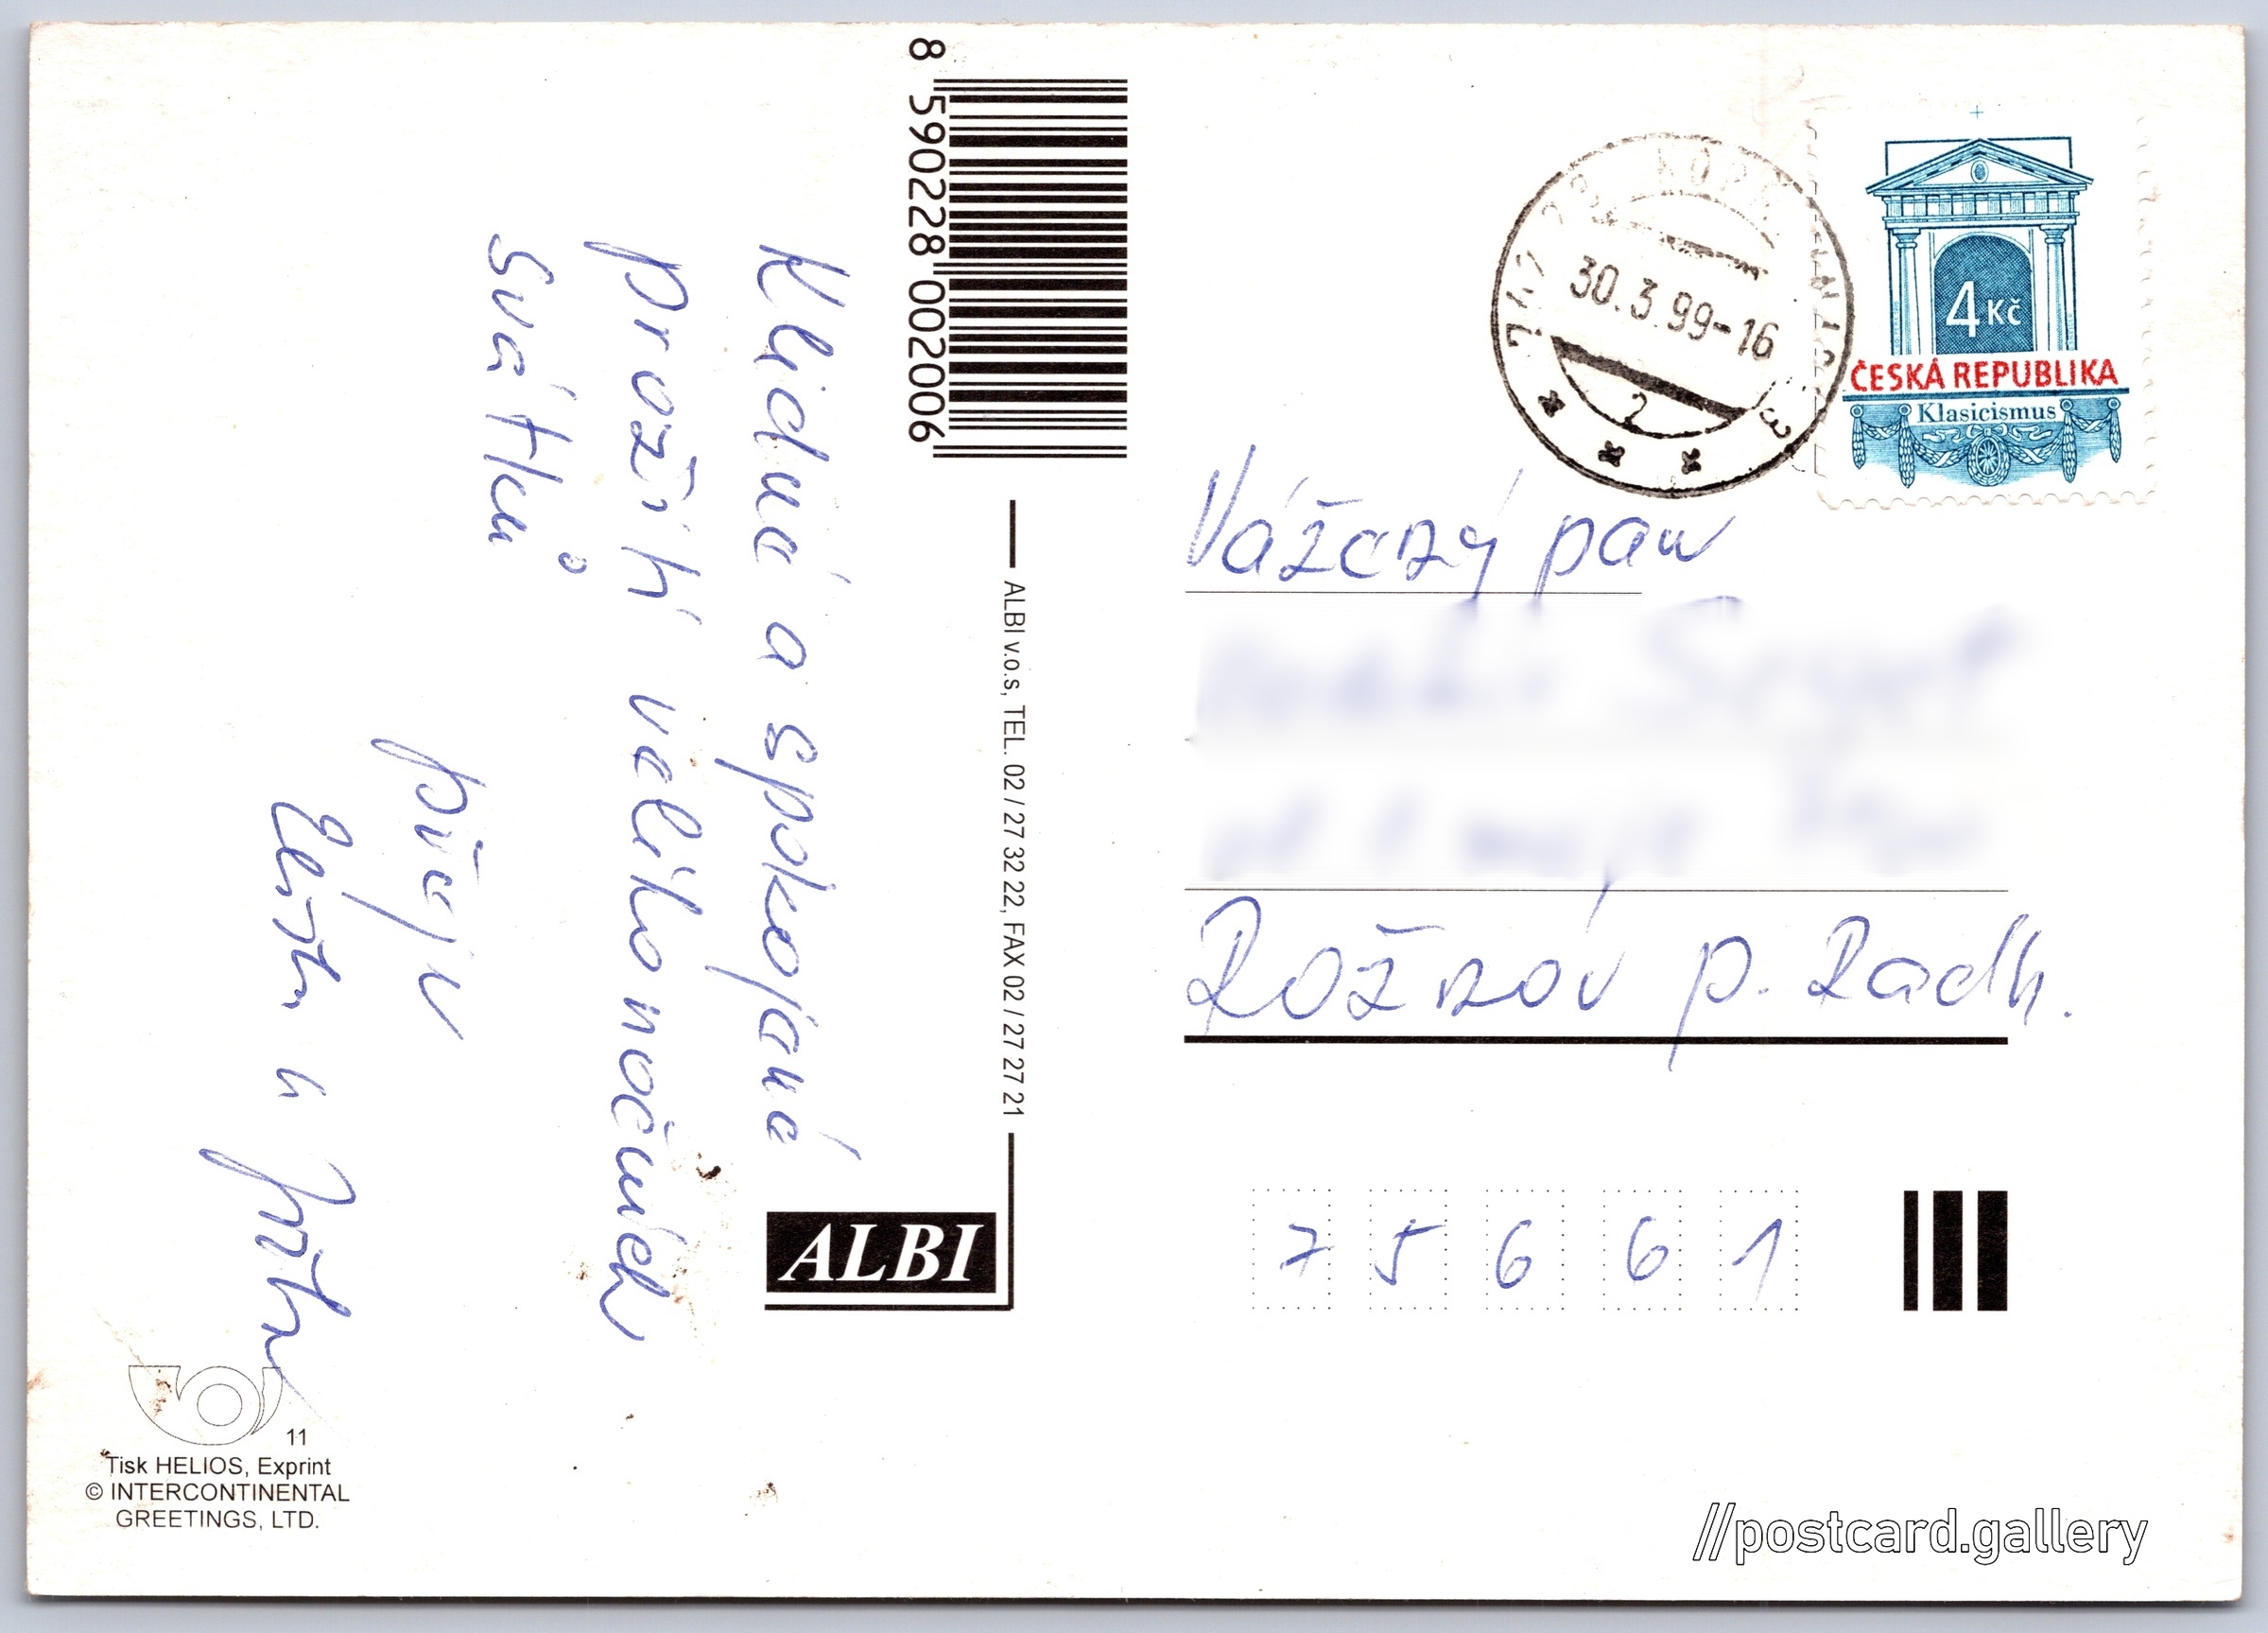 Klidné a spokojené
prožití velikonočních
svátků
přejí
8 590228 002006
ALBI v.o.s, TEL. 02 / 27 32 22, FAX 02 / 27 27 21
ALBI
11
Tisk HELIOS, Exprint
© INTERCONTINENTAL
GREETINGS, LTD.
30.3.99-16
2
3
4 Kč
ČESKÁ REPUBLIKA
Klasicismus
Vážený pan
Rožnov p. Radh.
75661
//postcard.gallery